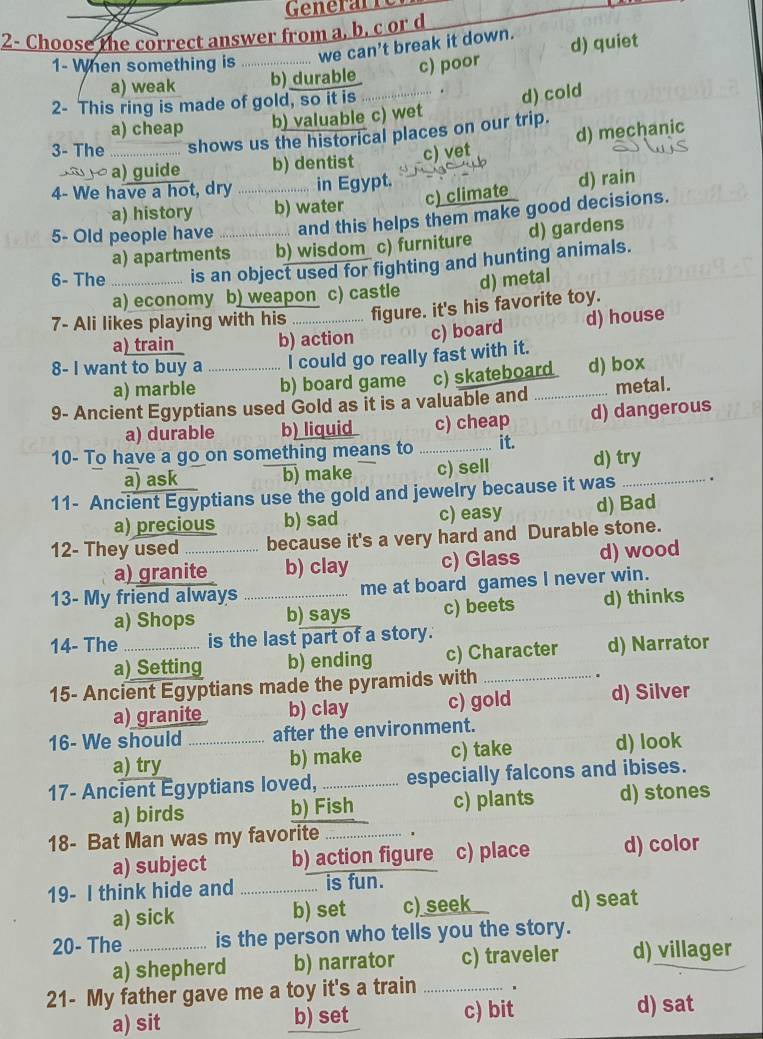 General
2- Choose the correct answer from a, b, c or d
1- When something is .................. we can't break it down.
a) weak b) durable c) poor d) quiet
2- This ring is made of gold, so it is .................. .
a) cheap b) valuable c) wet d) cold
3- The .................. shows us the historical places on our trip.
a) guide b) dentist c) vet d) mechanic
4- We have a hot, dry .................. in Egypt.
a) history b) water c) climate d) rain
5- Old people have .................. and this helps them make good decisions.
a) apartments b) wisdom c) furniture d) gardens
6- The .................. is an object used for fighting and hunting animals.
a) economy b) weapon c) castle d) metal
7- Ali likes playing with his .................. figure. it's his favorite toy.
a) train b) action c) board d) house
8- I want to buy a .................. I could go really fast with it.
a) marble b) board game c) skateboard d) box
9- Ancient Egyptians used Gold as it is a valuable and .................. metal.
a) durable b) liquid c) cheap d) dangerous
10- To have a go on something means to .................. it.
a) ask b) make c) sell d) try
11- Ancient Egyptians use the gold and jewelry because it was .................. .
a) precious b) sad c) easy d) Bad
12- They used .................. because it's a very hard and Durable stone.
a) granite b) clay c) Glass d) wood
13- My friend always .................. me at board games I never win.
a) Shops b) says c) beets d) thinks
14- The .................. is the last part of a story.
a) Setting b) ending c) Character d) Narrator
15- Ancient Egyptians made the pyramids with .................. .
a) granite b) clay c) gold d) Silver
16- We should .................. after the environment.
a) try b) make c) take d) look
17- Ancient Egyptians loved, .................. especially falcons and ibises.
a) birds b) Fish c) plants d) stones
18- Bat Man was my favorite .................. .
a) subject b) action figure c) place d) color
19- I think hide and .................. is fun.
a) sick b) set c) seek d) seat
20- The .................. is the person who tells you the story.
a) shepherd b) narrator c) traveler d) villager
21- My father gave me a toy it's a train .................. .
a) sit b) set c) bit d) sat